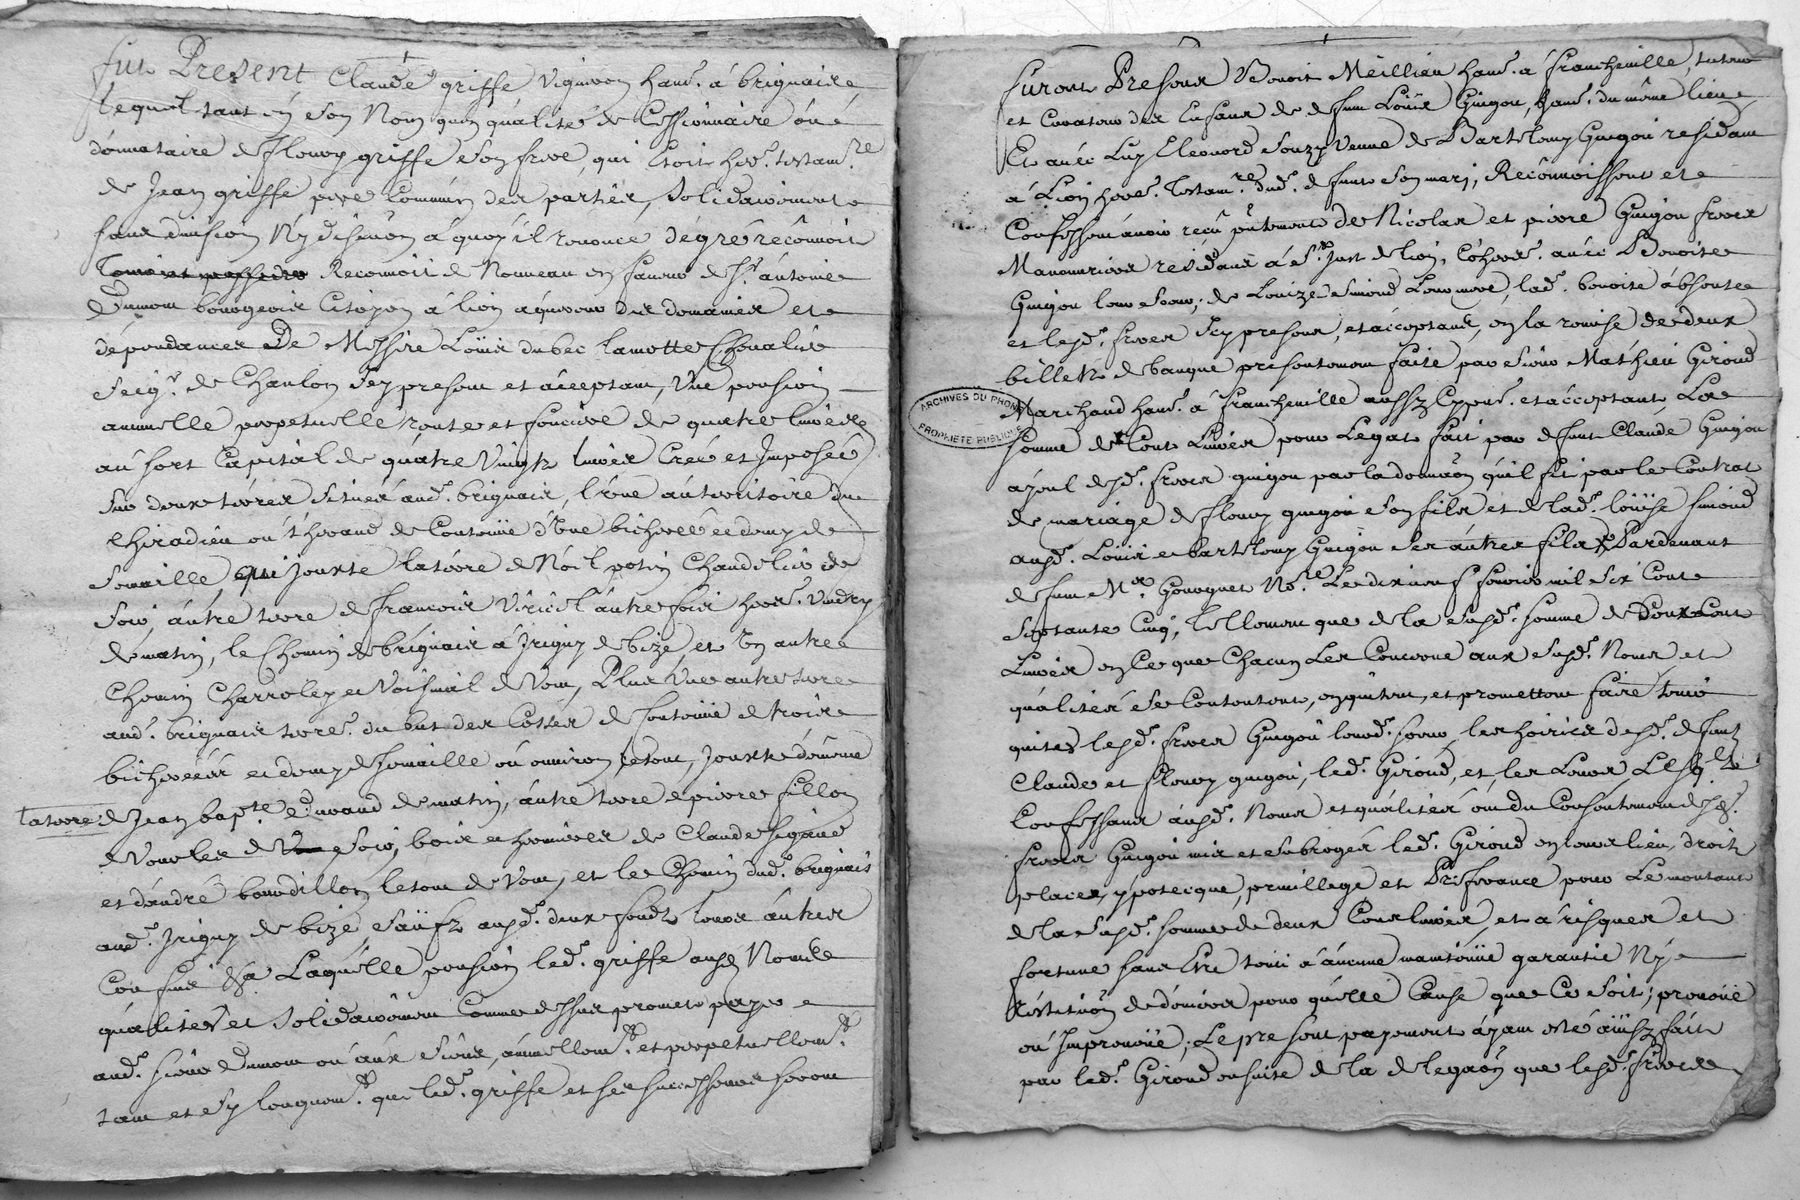 fut Present Claude griffe vigneron hant. á brignaire
lequel tant en son Nom qu'en quálité de Cessionnaire óu
dónnataire de fleury griffe son frere, qui Etoit her. testam.re
de Jean griffe pere Commun des parties, solidairement
sans division Ny discution á quoy il rénonce dégré réconnoit
Reconnoit de Nouveau en faveur de Sr. ántoine
Dumon bourgeois Citoyen á lion áquereur des domaines et
dépendances De Messire Loüis dubec lamotte Chevalier
seigr. de Chanlon Icy present et ácceptant, Une pension
annuelle perpetuelle rente et fonciere de quatre livres
au sort Capital de quátre Vingts livres Créé et Imposée
sur deux terres situées aud. brignais, l'une au territoire du
chiradieu ou theraud de Contenüe d'Une bicherée et demy de
semaille qui Jouxte la terre de Nöel potin Chandelier de
soir, áutre terre de francois Viricel áutrefois her. Vindry
de mátin, le Chemin de brignais á Jrigny de bize et Un autre
Chemin Charroley et Voisinal de Vent, Plus Une autre terre
aud. brignais terre. du but des Costes de Contenüe de trois
bicherées et demy de semaille óu environ le tout, Jouxte
la terre de Jean bapte. Durand de matin, áutre terre de pierre fillon
de Vourles de soir, bois et hermiers de Claude
et d'andré bourdillon le tout de Vent, et le Chemin dud. brignais
aud. Jrigny de bize sáuf aux sd. deux fonds leurs áutres
Confins &a Láquelle pension led. griffe ausd. Noms
quálités et solidairement Comme dessus promet payer
aud. sieur Dumon óu aux siens, ánnuellemt. et perpetuellemt.
tant et sy longuemt. que led. griffe et ses successeurs seront
furent Present Benoit Meillieu hant. á francheville, tuteur
et Curateur des Enfans de defunt Loüis Guigou, hant. du même lieu
Et avec Luy Eleonord Souzy Veuve de Bartelemy Guigou residant
á Lion here. Testam.re dud. defunt son mary, Reconnoissent et
Confessent ávoir réçû presentement de Nicolas et pierre Guigou freres
Manouvriers residans á St. Just de lion, Cohers. avec Benoite
Guigou leur soeur, de Louize simond Leur mere, lad. benoite ábsente
et lesd. freres Icy presens, et ácceptans, en la remise de deux
billets de banque presentement faite par sieur Mathieu Giroud
Marchand hant. á francheville aussy present et ácceptant La
somme de Cent Livres pour Legat fait par defunt Claude Guigou
ayeul desd. freres guigou par la donnaon qu'il fit par le Contrat
de mariage de fleury guigou son fils et de lad. loüise simond
ausd. Loüis et bartelemy Guigou ses áutres fils Pardevant
defunt Me. Gouvernet No.re Le dix neuf fevrier mil six Cent
septante Cinq, tellement que de la susd. somme de deux Cent
Livres en Ce que Chacun Les Concerne aux susd. Noms et
quálités se Contentent, en quittent, et promettent faire tenir
quites lesd. freres Guigou leurd. soeur, les hoiries desd. defunts
Claude et fleury guigou, led. Giroud, et les Leurs Lesqls
Confessans ausd. Noms et quálités ont du Consentement desd.
freres Guigou mis et subrogés led. Giroud en leur lieu, droits
places, ypoteque, privillege et Prefferance pour Le montant
de la susd. somme de deux Cens livres, et á risques et
fortune sans Etre tenu á áucune maintenüe garantie Ny
Réstitution de déniers pour quélle Cause que Ce soit, prevüe
óu Jmprevüe, Le present payement áyant esté áüssy fait
par led. Giroud ensuite de la delegaón que lesd. freres
ARCHIVES DU RHONE
PROPRIETE PUBLIQUE